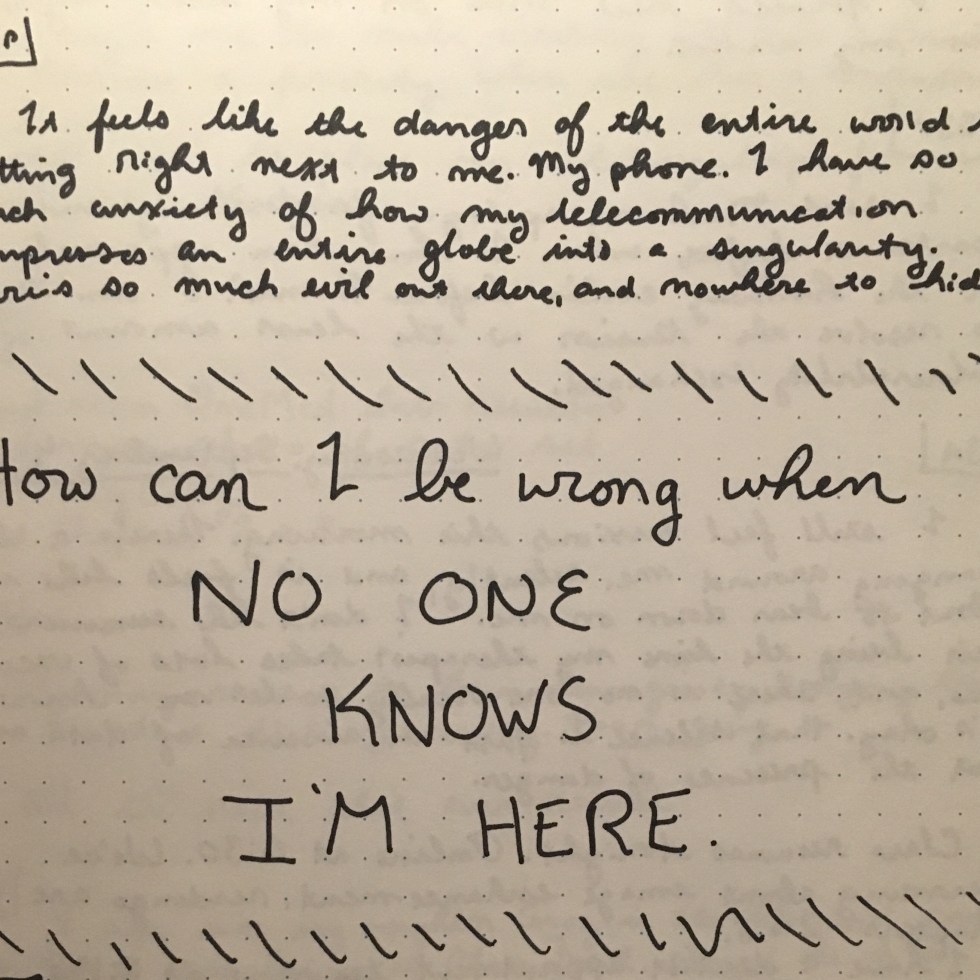 It feels like the danger of the entire world
tting right next to me. My phone. I have so
ch anxiety of how my telecommunication
mpresses an entire globe into a singularity.
re's so much evil out there, and nowhere to hid
How can I be wrong when
NO ONE
KNOWS
I'M HERE.